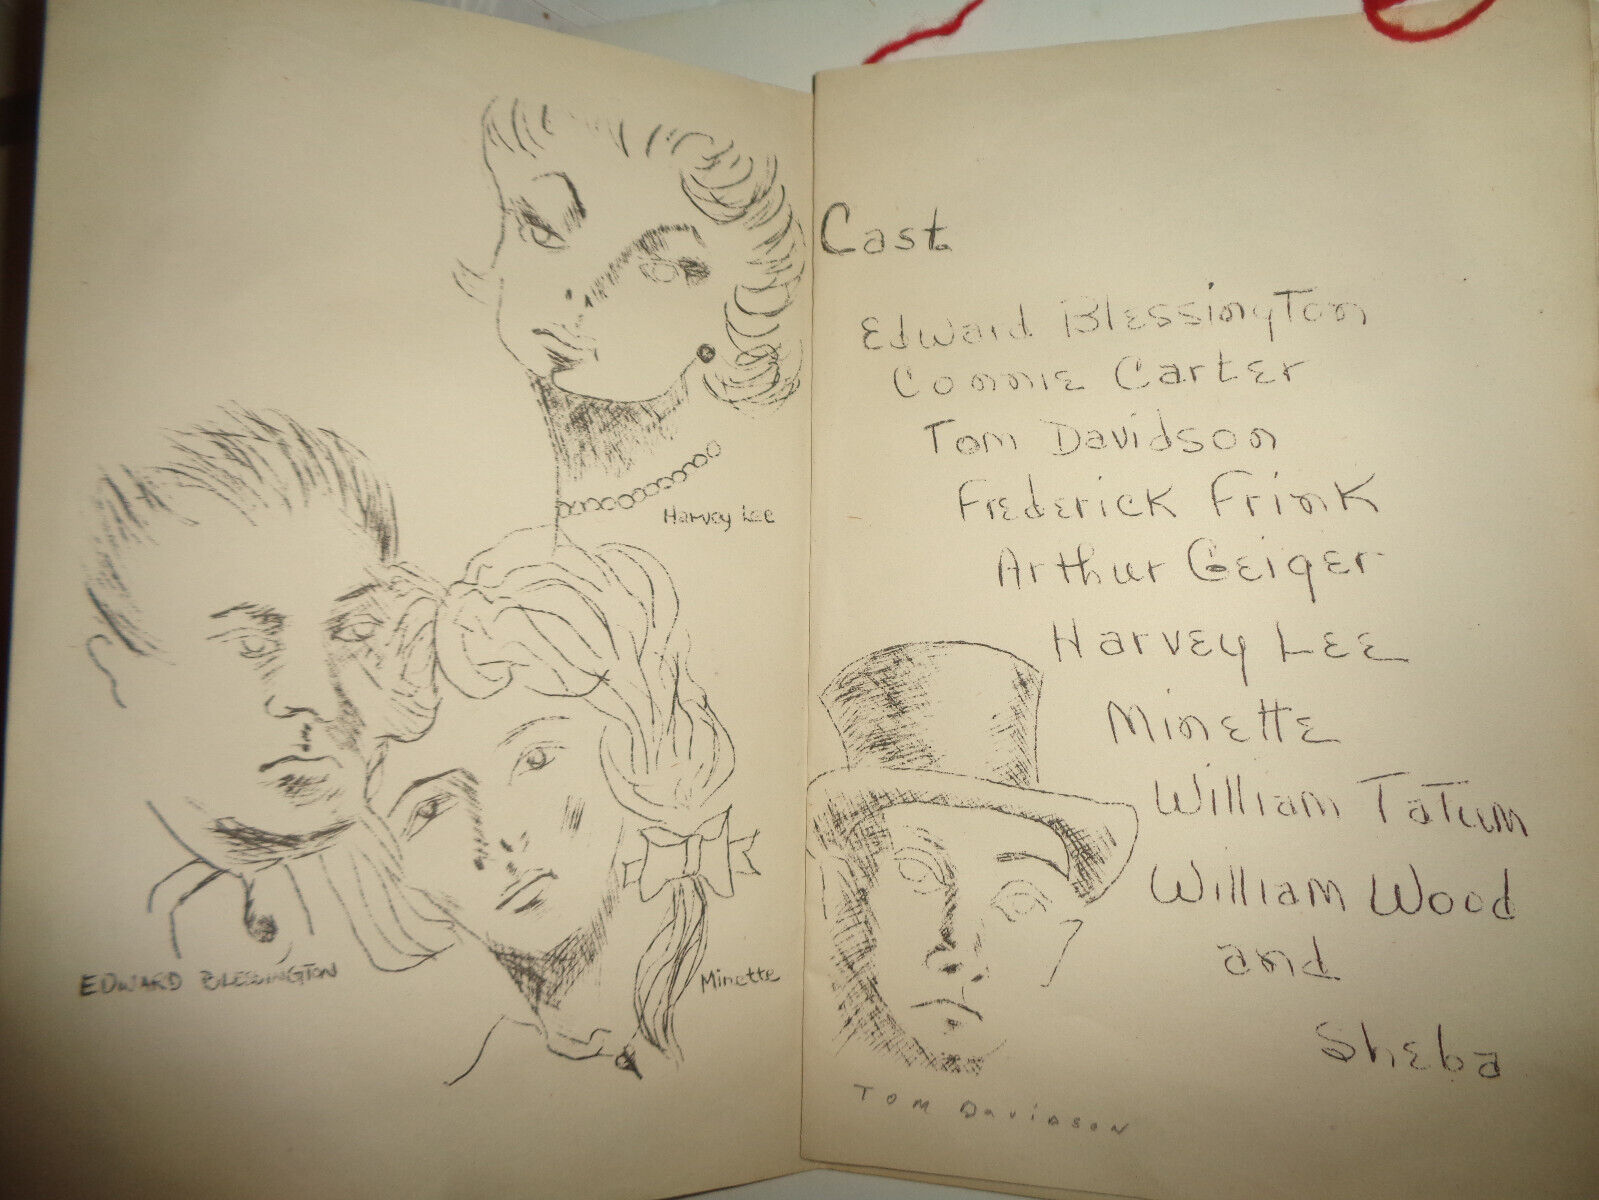 Harvey Lee
EDWARD BLESSINGTON
Minette
Cast
Edward Blessington
Connie Carter
Tom Davidson
Frederick Frink
Arthur Geiger
Harvey Lee
Minette
William Tatum
William Wood
and
Sheba
Tom Davidson